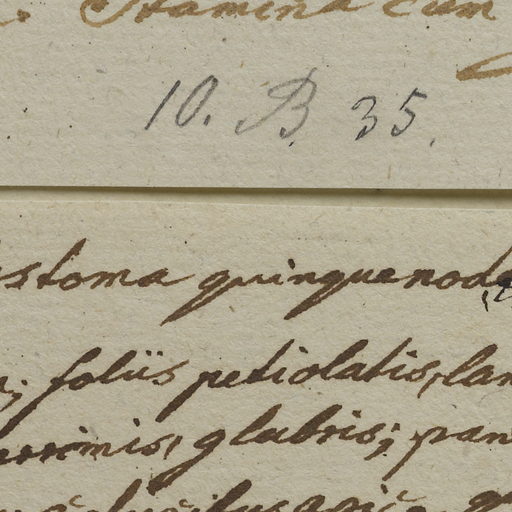 Stamina cum
10. B. 35.
stoma quinquenod
foliis petiolatis, lan
errimis, glabris; pan